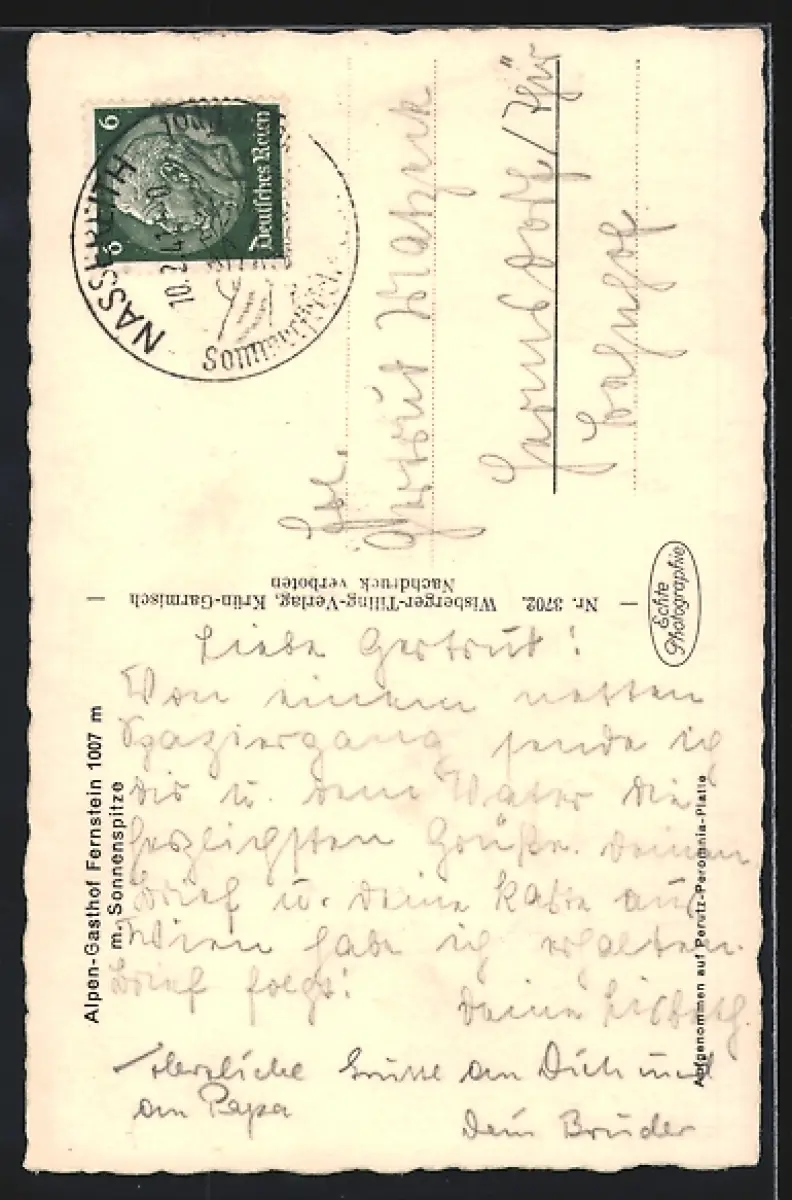 6 6
Deutsches Reich
NASSEREITH
10.2.41
Frl.
Gertrut
Hermsdorf/Thür
Bahnhof
Nr. 3702. Wisberger-Tiling-Verlag, Krün-Garmisch
Nachdruck verboten
Echte
Photographie
Alpen-Gasthof Fernstein 1007 m
m. Sonnenspitze
Aufgenommen auf Perutz-Peromnia-Platte
Liebe Gertrut!
Von einem netten
Spaziergang sende ich
Dir u. dem Vater die
herzlichsten Grüße. Deinen
Brief u. Deine Karte aus
Wien habe ich erhalten.
Brief folgt!
Deine Lisbeth
Herzliche Grüsse an Dich und
an Papa
Dein Bruder